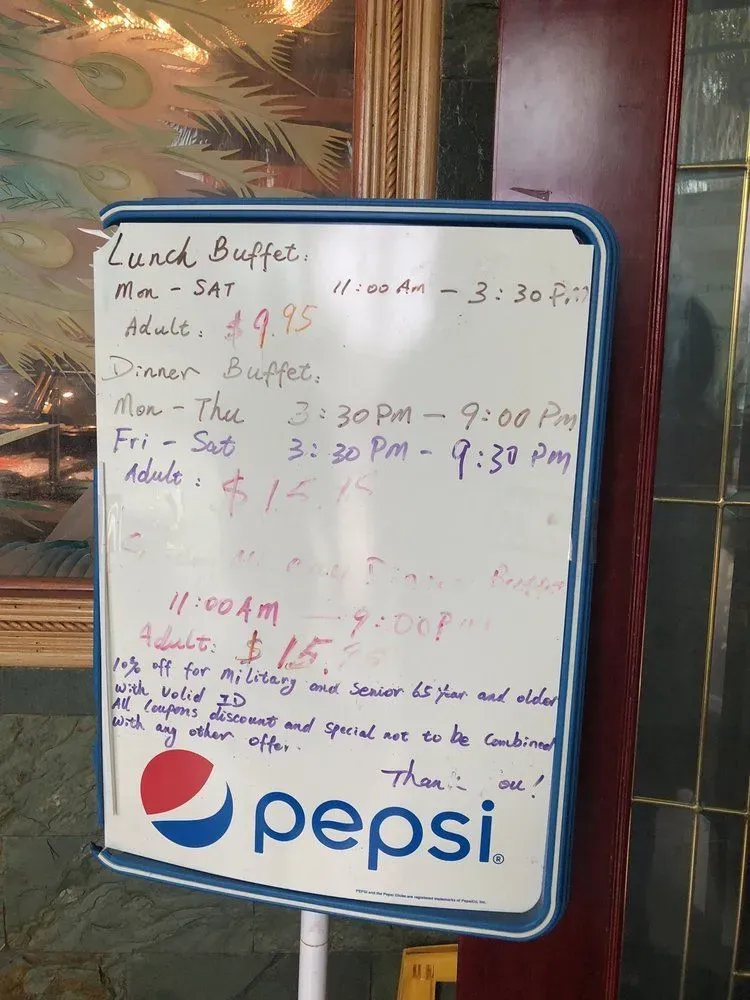 Lunch Buffet:
Mon - SAT 11:00 Am - 3:30 Pm
Adult: $9.95
Dinner Buffet:
Mon - Thu 3:30 PM - 9:00 PM
Fri - Sat 3:30 PM - 9:30 PM
Adult: $15.
Dinner Buffet
11:00 AM - 9:00 P
Adult: $15.
10% off for military and Senior 65 year and older
with Valid ID
All Coupons discount and special not to be Combined
with any other offer.
Than ou!
pepsi®
PEPSI and the Pepsi Globe are registered trademarks of PepsiCo, Inc.